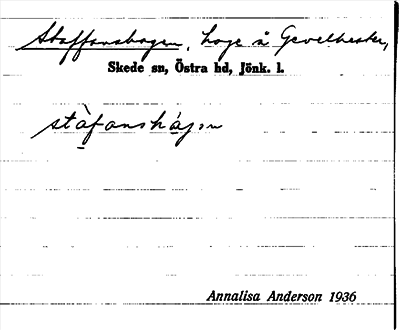 Staffanshagen, hage å Gevelhester,
Skede sn, Östra hd, Jönk. l.
stàfanshágen
Annalisa Anderson 1936